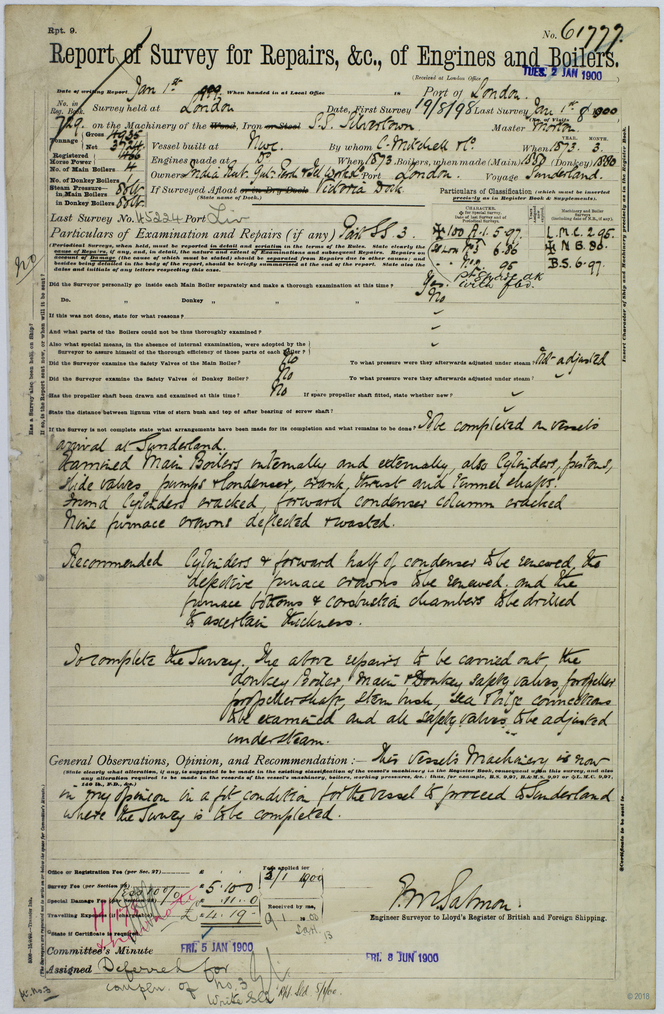 Rpt. 9.
No. 61777.
Report of Survey for Repairs, &c., of Engines and Boilers.
(Received at London Office
TUES. 2 JAN 1900
Date of writing Report Jan 1st 1900 When handed in at Local Office in Port of London.
No. in Reg. Book. Survey held at London Date, First Survey 19/8/98 Last Survey Jan 1st 1900
729. on the Machinery of the Wood, Iron or Steel S.S. Silvertown Master Morton
Tonnage Gross 4935 Net
Vessel built at Nwc. By whom C. Mitchell & Co. When 1873 MONTH. 3
Registered Horse Power 400
Engines made at Do When 1873. Boilers, when made (Main) (Donkey)
No. of Main Boilers 4
Owners India Rub. Gut. Perch & Tel Works Co Port London. Voyage Sunderland.
No. of Donkey Boilers 1
Steam Pressure in Main Boilers
If Surveyed Afloat or in Dry Dock Victoria Dock.
(State name of Dock.)
in Donkey Boilers
Particulars of Classification (which must be inserted precisely as in Register Book & Supplements).
Last Survey No. 45224 Port Liv
Particulars of Examination and Repairs (if any) Part SS 3.
100 A.1. 5.97. L.M.C. 2.95.
6.86 N.B. 86.
95 B.S. 6.97.
with fbd.
(Periodical Surveys, when held, must be reported in detail and seriatim in the terms of the Rules. State clearly the cause of Repairs, if any, and, in detail, the nature and extent of Examinations and subsequent Repairs. Repairs on account of Damage (the cause of which must be stated) should be separated from Repairs due to other causes; and besides being detailed in the body of the report, should be briefly summarised at the end of the report. State also the dates and initials of any letters respecting this case.
Did the Surveyor personally go inside each Main Boiler separately and make a thorough examination at this time? Yes.
Do. Donkey " " " No
If this was not done, state for what reasons?
And what parts of the Boilers could not be thus thoroughly examined?
Also what special means, in the absence of internal examination, were adopted by the
Surveyor to assure himself of the thorough efficiency of those parts of each Boiler?
Did the Surveyor examine the Safety Valves of the Main Boiler? No To what pressure were they afterwards adjusted under steam? Not adjusted
Did the Surveyor examine the Safety Valves of Donkey Boiler? No To what pressure were they afterwards adjusted under steam?
Has the propeller shaft been drawn and examined at this time? No If spare propeller shaft fitted, state whether new?
State the distance between lignum vitæ of stern bush and top of after bearing of screw shaft?
If the Survey is not complete state what arrangements have been made for its completion and what remains to be done? To be completed on vessel's
arrival at Sunderland.
Examined Main Boilers internally and externally, also Cylinders, pistons,
slide valves, pumps & Condenser, crank, thrust and tunnel shafts.
Found Cylinders cracked, forward condenser column cracked
Nine furnace crowns deflected & wasted.
Recommended Cylinders & forward half of condenser to be renewed, the
defective furnace crowns to be renewed. and the
furnace bottoms & combustion chambers to be drilled
to ascertain thickness.
To complete the Survey. The above repairs to be carried out, the
donkey Boiler, Main & Donkey safety valves, propeller
propeller shaft, stern bush, sea & bilge connections
to be examined and all safety valves to be adjusted
under steam.
General Observations, Opinion, and Recommendation:— This vessel's Machinery is now
(State clearly what alteration, if any, is suggested to be made in the existing classification of the vessel's machinery in the Register Book, consequent upon this survey, and also
any alteration required to be made in the records of the vessel's machinery, boilers, working pressures, &c.; thus, for example, B.S. 9,97, B.&M.S. 9,97 or L.M.C. 9,97,
140 lb., F.D., &c.)
in my opinion in a fit condition for the vessel to proceed to Sunderland
where the Survey is to be completed.
Office or Registration Fee (per Sec. 27)
Fees applied for 3/1 1900
Survey Fee (per Section 28) £ 5.10.0
Special Damage Fee
Travelling Expenses (if chargeable) £ 4.19.-
Received by me,
State if Certificate is required
Engineer Surveyor to Lloyd's Register of British and Foreign Shipping.
Committee's Minute FRI. 5 JAN 1900
FRI. 8 JUN 1900
Assigned Deferred for
compln. of No. 3
Write Sld
© 2018